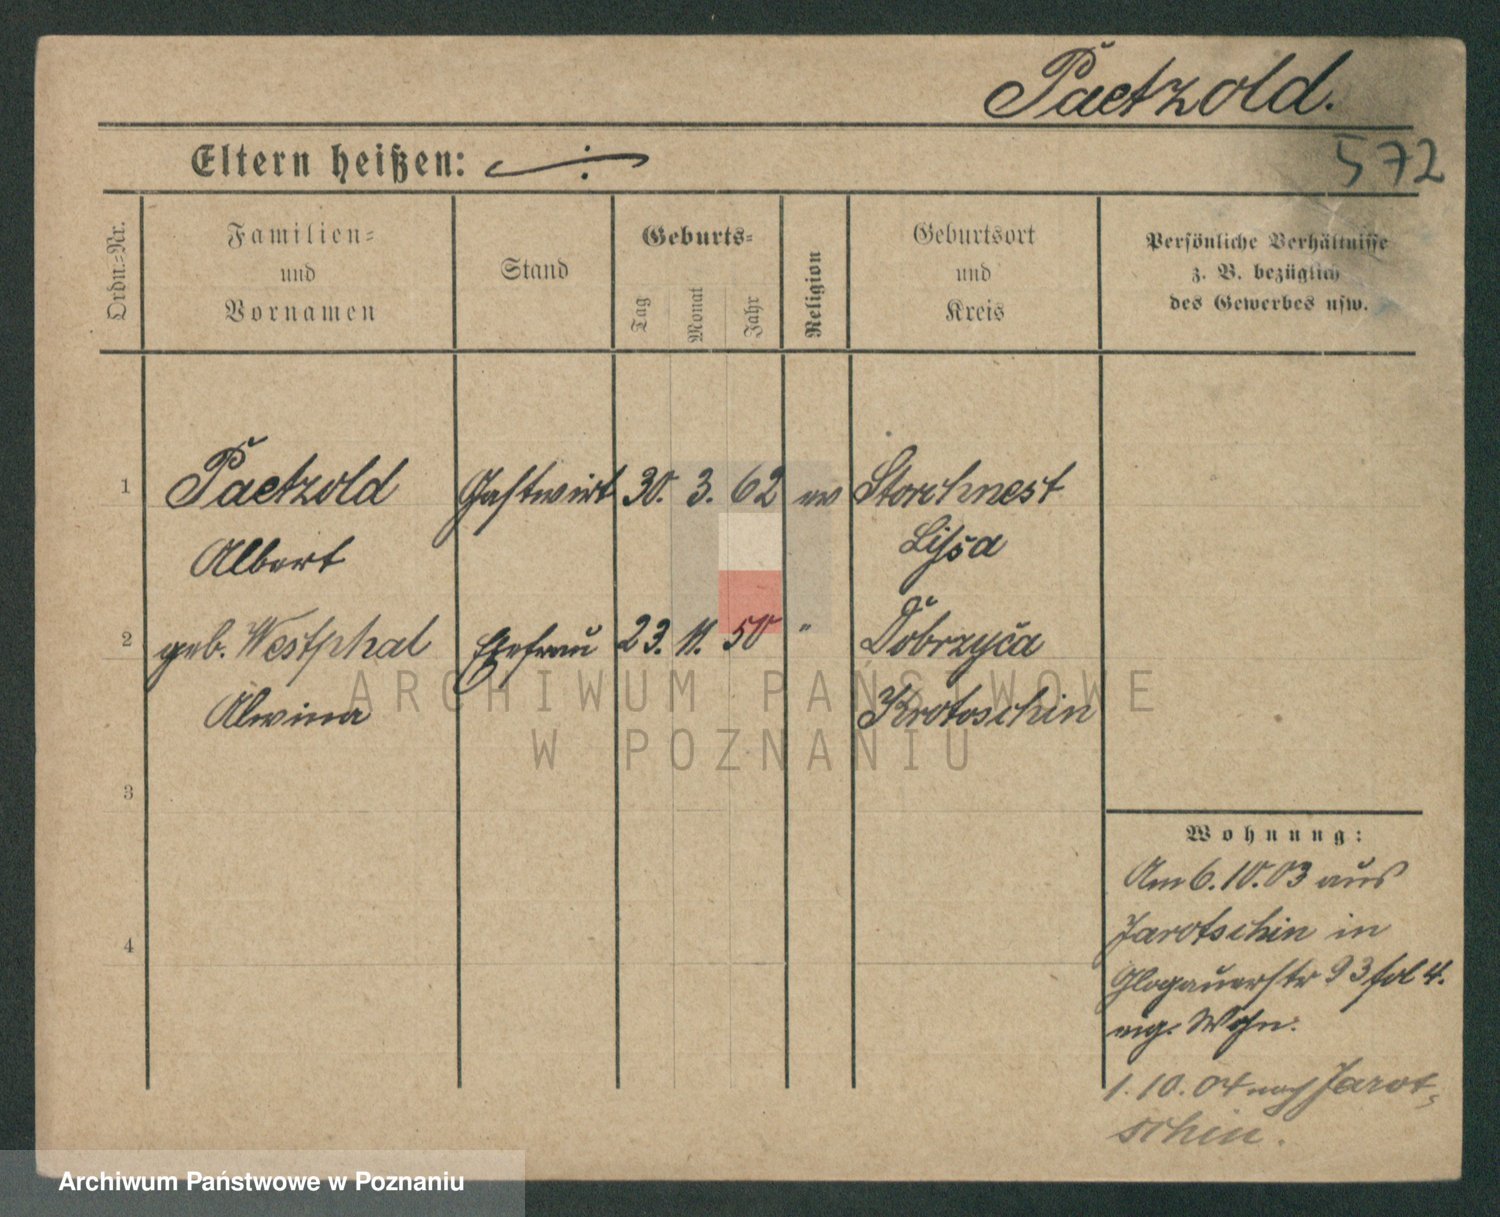 Paetzold.
572
Eltern heißen:
Ordn.-Nr.
Familien-
und
Vornamen
Stand
Geburts-
Tag
Monat
Jahr
Religion
Geburtsort
und
Kreis
Persönliche Verhältnisse
z. B. bezüglich
des Gewerbes usw.
1 Paetzold Gastwirt 30. 3. 62 ev Storchnest
Albert Lissa
2 geb. Westphal Ehefrau 23. 11. 50 " Dobrzyca
Alwina Krotoschin
3
4
Wohnung:
Am 6.10.03 aus
Jarotschin in
Glogauerstr 93 fol 4.
eig. Wohn.
1.10.04 nach Jarot-
schin.
ARCHIWUM PAŃSTWOWE
W POZNANIU
Archiwum Państwowe w Poznaniu